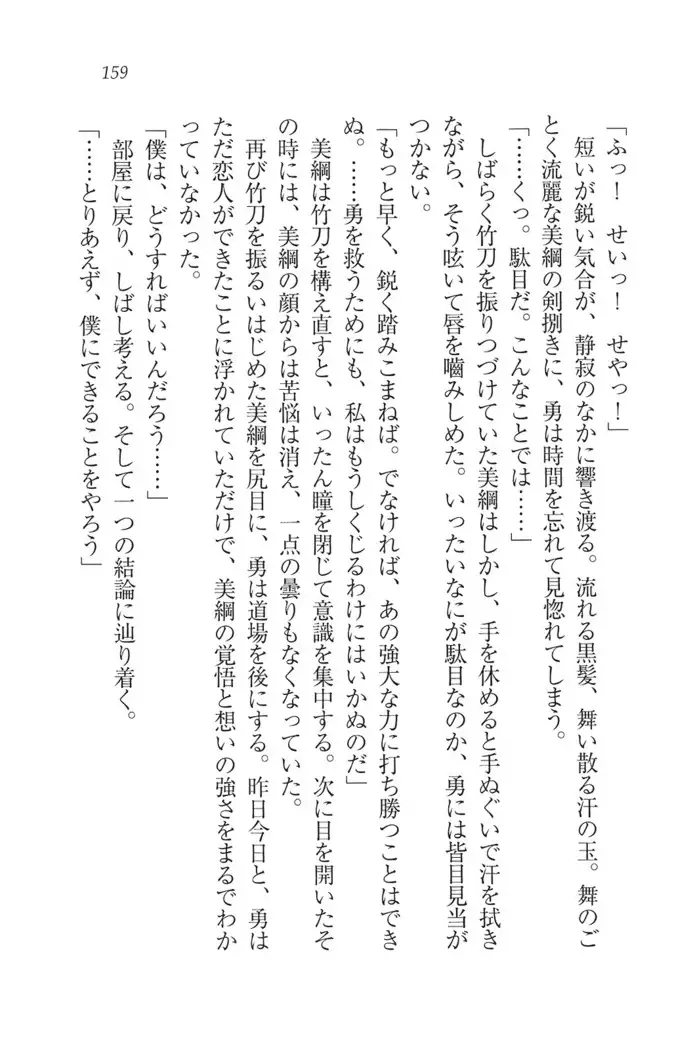 159
「ふっ！　せいっ！　せやっ！」
　短いが鋭い気合が、静寂のなかに響き渡る。流れる黒髪、舞い散る汗の玉。舞のご
とく流麗な美綱の剣捌きに、勇は時間を忘れて見惚れてしまう。
「……くっ。駄目だ。こんなことでは……」
　しばらく竹刀を振りつづけていた美綱はしかし、手を休めると手ぬぐいで汗を拭き
ながら、そう呟いて唇を嚙みしめた。いったいなにが駄目なのか、勇には皆目見当が
つかない。
「もっと早く、鋭く踏みこまねば。でなければ、あの強大な力に打ち勝つことはでき
ぬ。……勇を救うためにも、私はもうしくじるわけにはいかぬのだ」
　美綱は竹刀を構え直すと、いったん瞳を閉じて意識を集中する。次に目を開いたそ
の時には、美綱の顔からは苦悩は消え、一点の曇りもなくなっていた。
　再び竹刀を振るいはじめた美綱を尻目に、勇は道場を後にする。昨日今日と、勇は
ただ恋人ができたことに浮かれていただけで、美綱の覚悟と想いの強さをまるでわか
っていなかった。
「僕は、どうすればいいんだろう……」
　部屋に戻り、しばし考える。そして一つの結論に辿り着く。
「……とりあえず、僕にできることをやろう」